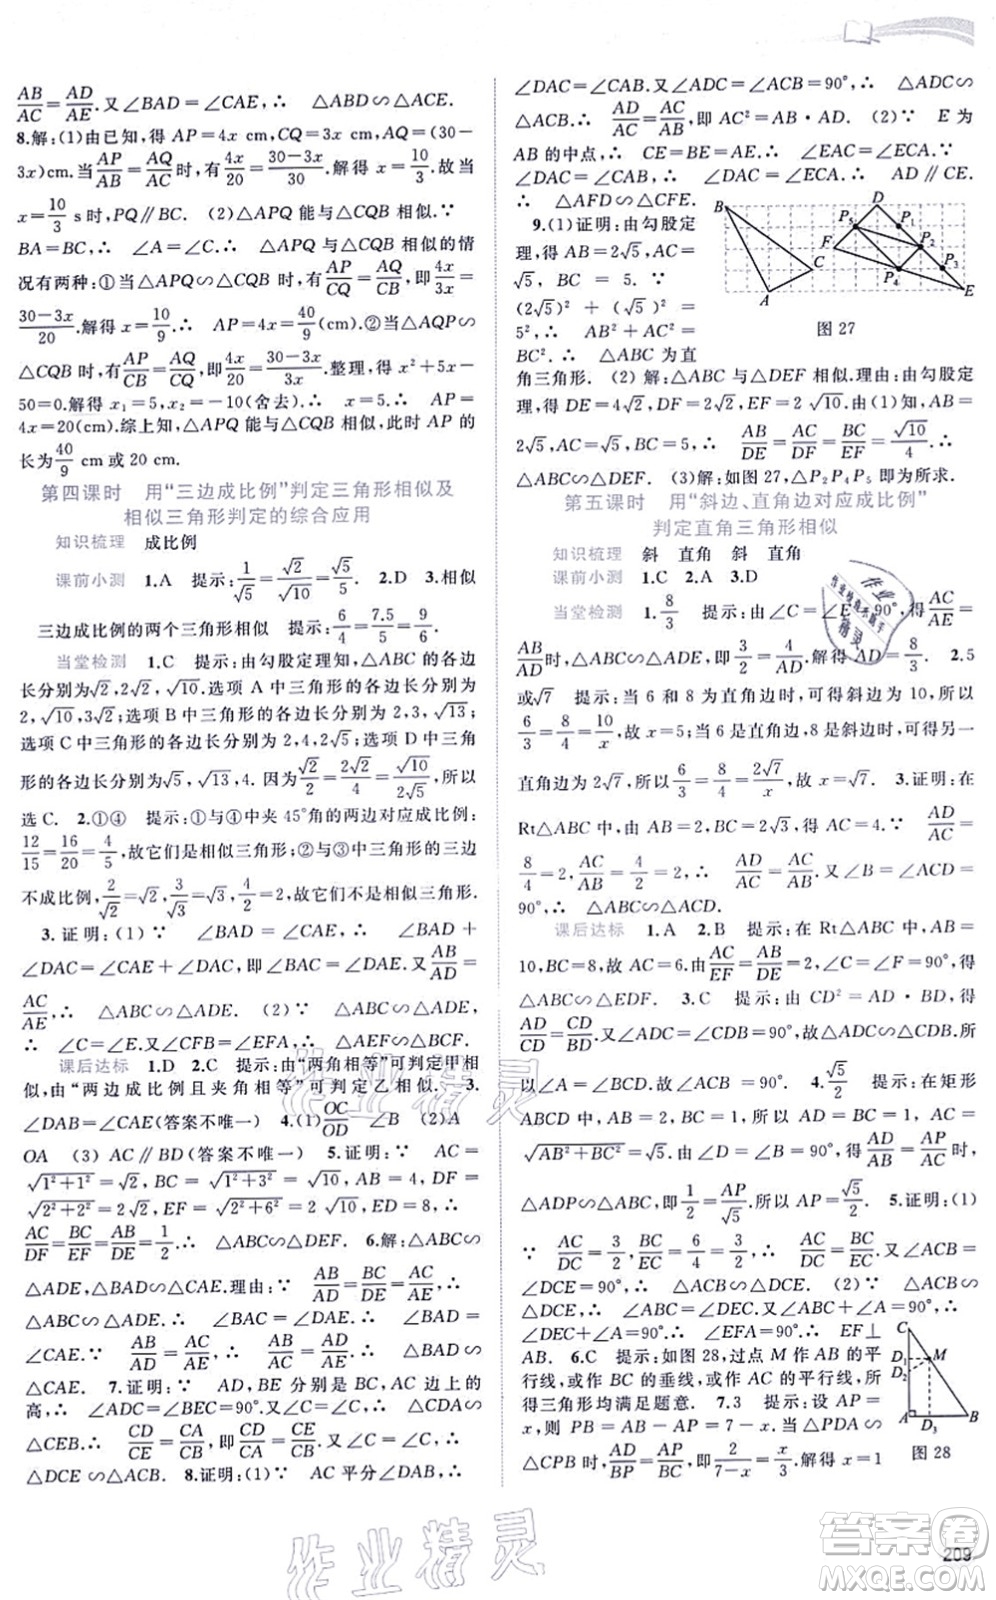 AB/AC=AD/AE.又∠BAD=∠CAE,∴ △ABD∽△ACE.
8.解:(1)由已知,得 AP=4x cm,CQ=3x cm,AQ=(30-
3x)cm.当AP/AB=AQ/AC时,有4x/20=(30-3x)/30.解得 x=10/3.故当
x=10/3 s时,PQ∥BC. (2)△APQ 能与△CQB 相似.∵
BA=BC,∴ ∠A=∠C.∴ △APQ 与△CQB 相似的情
况有两种:①当△APQ∽△CQB 时,有AP/CQ=AQ/CB,即4x/3x=
(30-3x)/20.解得 x=10/9.∴ AP=4x=40/9(cm).②当△AQP∽
△CQB 时,有AP/CB=AQ/CQ,即4x/20=(30-3x)/3x.整理,得 x²+5x-
50=0.解得 x₁=5,x₂=-10(舍去).∴ x=5.∴ AP=
4x=20(cm).综上知,△APQ 能与△CQB 相似,此时 AP 的
长为40/9 cm 或 20 cm.
第四课时 用“三边成比例”判定三角形相似及
相似三角形判定的综合应用
知识梳理 成比例
课前小测 1.A 提示:1/√5=√2/√10=√2/√5. 2.D 3.相似
三边成比例的两个三角形相似 提示:6/4=7.5/5=9/6.
当堂检测 1.C 提示:由勾股定理知,△ABC 的各边
长分别为√2,2√2,√10.选项 A 中三角形的各边长分别为
2,√10,3√2;选项 B 中三角形的各边长分别为 2,3,√13;
选项 C 中三角形的各边长分别为 2,4,2√5;选项 D 中三角
形的各边长分别为√5,√13,4.因为√2/2=2√2/4=√10/2√5,所以
选 C. 2.①④ 提示:①与④中夹 45°角的两边对应成比例:
12/15=16/20=4/5,故它们是相似三角形;②与③中三角形的三边
不成比例,2/√2=√2,3/√3=√3,4/2=2,故它们不是相似三角形.
3.证明:(1)∵ ∠BAD=∠CAE,∴ ∠BAD+
∠DAC=∠CAE+∠DAC,即∠BAC=∠DAE.又AB/AD=
AC/AE,∴ △ABC∽△ADE. (2)∵ △ABC∽△ADE,
∴ ∠C=∠E.又∠CFB=∠EFA,∴ △ABC∽△EFA.
课后达标 1.D 2.C 提示:由“两角相等”可判定甲相
似,由“两边成比例且夹角相等”可判定乙相似. 3.
∠DAB=∠CAE(答案不唯一) 4.(1)OC/OD ∠B (2)A
OA (3)AC∥BD(答案不唯一) 5.证明:∵ AC=
√(1²+1²)=√2,BC=√(1²+3²)=√10,AB=4,DF=
√(2²+2²)=2√2,EF=√(2²+6²)=2√10,ED=8,∴
AC/DF=BC/EF=AB/DE=1/2.∴ △ABC∽△DEF. 6.解:△ABC∽
△ADE,△BAD∽△CAE.理由:∵ AB/AD=BC/DE=AC/AE,∴
△ABC∽△ADE.∴ ∠BAC=∠DAE.∴ ∠BAD=
∠CAE.∵ AB/AD=AC/AE,∴ AB/AC=AD/AE.∴ △BAD∽
△CAE. 7.证明:∵ AD,BE 分别是 BC,AC 边上的
高,∴ ∠ADC=∠BEC=90°.又∠C=∠C,∴ △CDA∽
△CEB.∴ CD/CE=CA/CB,即CD/CA=CE/CB.又∠C=∠C,∴
△DCE∽△ACB. 8.证明:(1)∵ AC 平分∠DAB,∴
∠DAC=∠CAB.又∠ADC=∠ACB=90°,∴ △ADC∽
△ACB.∴ AD/AC=AC/AB,即 AC²=AB·AD. (2)∵ E 为
AB 的中点,∴ CE=BE=AE.∴ ∠EAC=∠ECA.∵
∠DAC=∠CAB,∴ ∠DAC=∠ECA.∴ AD∥CE.
∴ △AFD∽△CFE.
9.(1)证明:由勾股定
理,得 AB=2√5,AC=
√5,BC=5.∵
(2√5)²+(√5)²=
5²,∴ AB²+AC²=
BC².∴ △ABC 为直
角三角形. (2)解:△ABC 与△DEF 相似.理由:由勾股定
理,得 DE=4√2,DF=2√2,EF=2√10.由(1)知,AB=
2√5,AC=√5,BC=5,∴ AB/DE=AC/DF=BC/EF=√10/4.∴
△ABC∽△DEF. (3)解:如图 27,△P₂P₄P₅即为所求.
B C A D E F P₅ P₁ P₂ P₃ P₄
图 27
第五课时 用“斜边、直角边对应成比例”
判定直角三角形相似
知识梳理 斜 直角 斜 直角
课前小测 1.C 2.A 3.D
当堂检测 1.8/3 提示:由∠C=∠E=90°,得AC/AE=
AB/AD时,△ABC∽△ADE,即3/2=4/AD.解得 AD=8/3. 2.5
或√7 提示:当 6 和 8 为直角边时,可得斜边为 10,所以
6/3=8/4=10/x,故 x=5;当 6 是直角边,8 是斜边时,可得另一
直角边为2√7,所以6/3=8/4=2√7/x,故 x=√7. 3.证明:在
Rt△ABC 中,由 AB=2,BC=2√3,得 AC=4.∵ AD/AC=
8/4=2,AC/AB=4/2=2,∴ AD/AC=AC/AB.又∠B=∠ACD=
90°,∴ △ABC∽△ACD.
课后达标 1.A 2.B 提示:在 Rt△ABC 中,AB=
10,BC=8,故 AC=6.由AC/EF=AB/DE=2,∠C=∠F=90°,得
△ABC∽△EDF. 3.C 提示:由 CD²=AD·BD,得
AD/CD=CD/BD.又∠ADC=∠CDB=90°,故△ADC∽△CDB.所
以∠A=∠BCD.故∠ACB=90°. 4.√5/2 提示:在矩形
ABCD 中,AB=2,BC=1,所以 AD=BC=1,AC=
√(AB²+BC²)=√5.由∠D=∠BCA=90°,得AD/AB=AP/AC时,
△ADP∽△ABC,即1/2=AP/√5.所以 AP=√5/2. 5.证明:(1)
∵ AC/DC=3/2,BC/EC=6/4=3/2,∴ AC/DC=BC/EC.又∠ACB=
∠DCE=90°,∴ △ACB∽△DCE. (2)∵ △ACB∽
△DCE,∴ ∠ABC=∠DEC.又∠ABC+∠A=90°,∴
∠DEC+∠A=90°.∴ ∠EFA=90°.∴ EF⊥
AB. 6.C 提示:如图 28,过点 M 作 AB 的平
行线,或作 BC 的垂线,或作 AC 的平行线,所
得三角形均满足题意. 7.3 提示:设 AP=
x,则 PB=AB-AP=7-x.当△PDA∽
△CPB 时,AD/BP=AP/BC,即2/(7-x)=x/3.解得 x=1
C D₁ D₂ M A D₃ B
图 28
作业精灵
作业精灵
作业精灵
答案卷
MXQE.COM
209